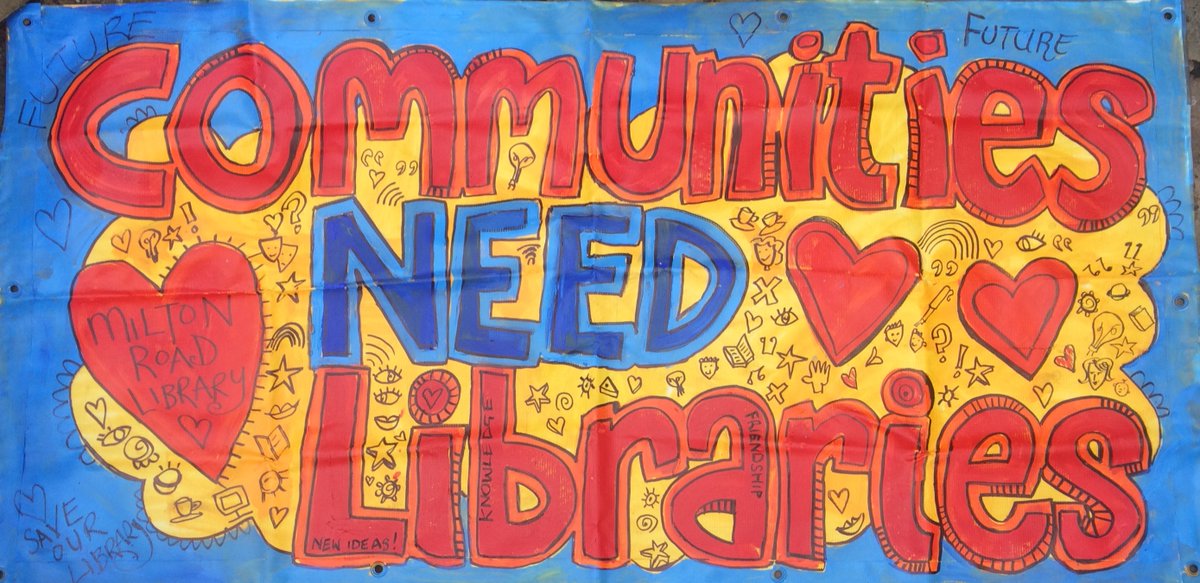 FUTURE
FUTURE
Communities
NEED
MILTON
ROAD
LIBRARY
Libraries
KNOWLEDGE
FRIENDSHIP
NEW IDEAS!
SAVE
OUR
LIBRARY